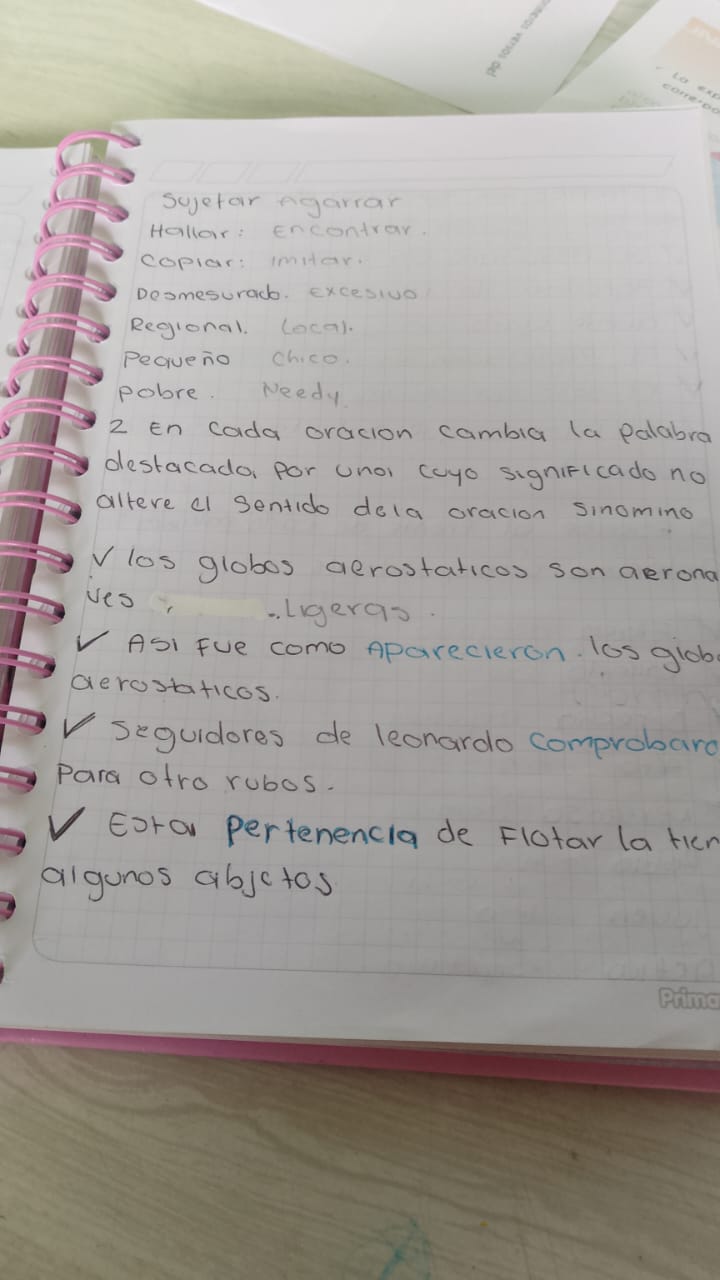 Sujetar Agarrar
Hallar: Encontrar.
Copiar: imitar.
Desmesurado. Excesivo
Regional. Local.
Pequeño Chico.
pobre. Needy
2 En cada oracion cambia la palabra
destacada por una cuyo significado no
altere el sentido dela oracion sinomino
✓ los globos aerostaticos son aerona
ves . Ligeras.
✓ Asi fue como Aparecieron. los glob
aerostaticos.
✓ seguidores de leonardo comprobaro
para otro rubos.
✓ Esta pertenencia de Flotar la tien
algunos abjctos
Prima
La exp
correspo
versos del